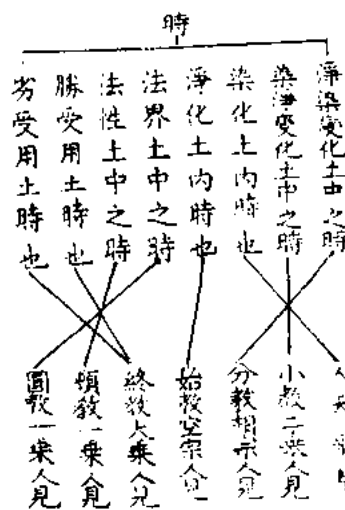 時
淨染變化土中之時
染淨變化土中之時
染化土内時也
淨化土内時也
法界土中之時
法性土中之時
勝受用土時也
劣受用土時也
小教二乘人見
分教相宗人見
始教空宗人見
終教大乘人見
頓教一乘人見
圓教一乘人見